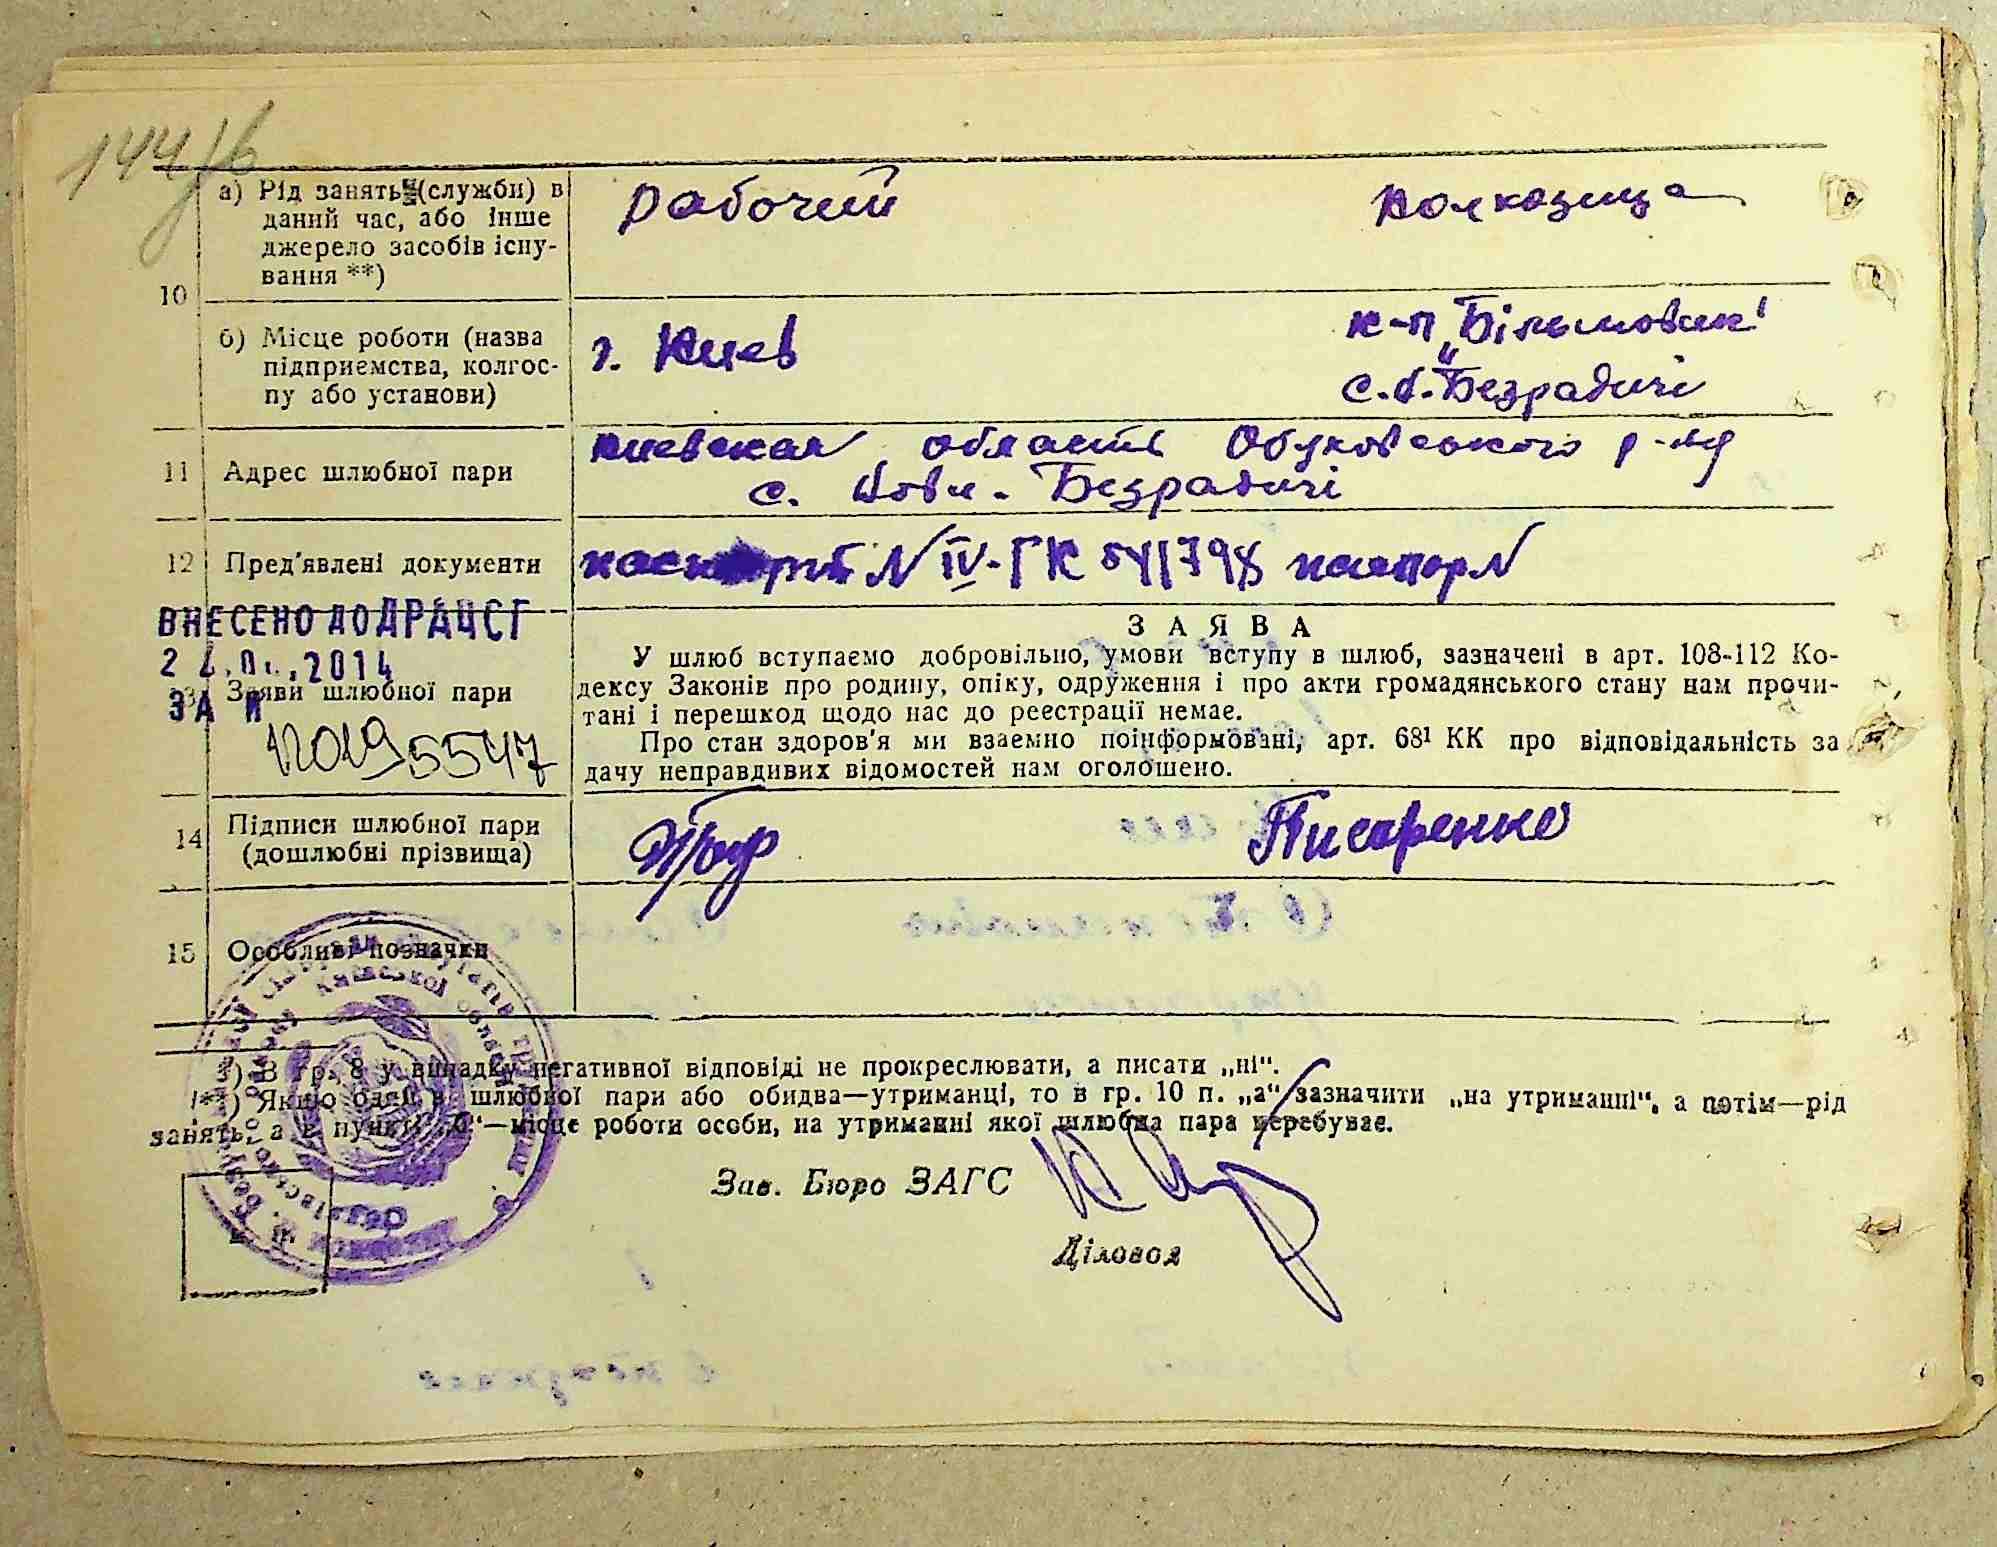 144/в
10
а) Рід занять (служби) в
даний час, або інше
джерело засобів існу-
вання **)
рабочий
колхозница
б) Місце роботи (назва
підприємства, колгос-
пу або установи)
г. Киев
к-п „Більшовик"
с. Н. Безрадичі
11 Адрес шлюбної пари
киевская область Обуховського р-на
с. Нові - Безрадичі
12 Пред'явлені документи
паспорт N IV-ГК 541798 паспор N
ВНЕСЕНО ДО ДРАЦСГ
2014
ЗАЯВА
Заяви шлюбної пари
ЗА N
120195547
У шлюб вступаємо добровільно, умови вступу в шлюб, зазначені в арт. 108-112 Ко-
дексу Законів про родину, опіку, одруження і про акти громадянського стану нам прочи-
тані і перешкод щодо нас до реєстрації немає.
Про стан здоров'я ми взаємно поінформовані, арт. 68¹ КК про відповідальність за
дачу неправдивих відомостей нам оголошено.
14 Підписи шлюбної пари
(дошлюбні прізвища)
Писаренко
15 Особливі позначки
Київської області
*) В гр. 8 у випадку негативної відповіді не прокреслювати, а писати „ні".
**) Якщо один з шлюбної пари або обидва—утриманці, то в гр. 10 п. „а" зазначити „на утриманні", а потім—рід
занять, а в пункті „б"—місце роботи особи, на утриманні якої шлюбна пара перебуває.
Зав. Бюро ЗАГС
Діловод